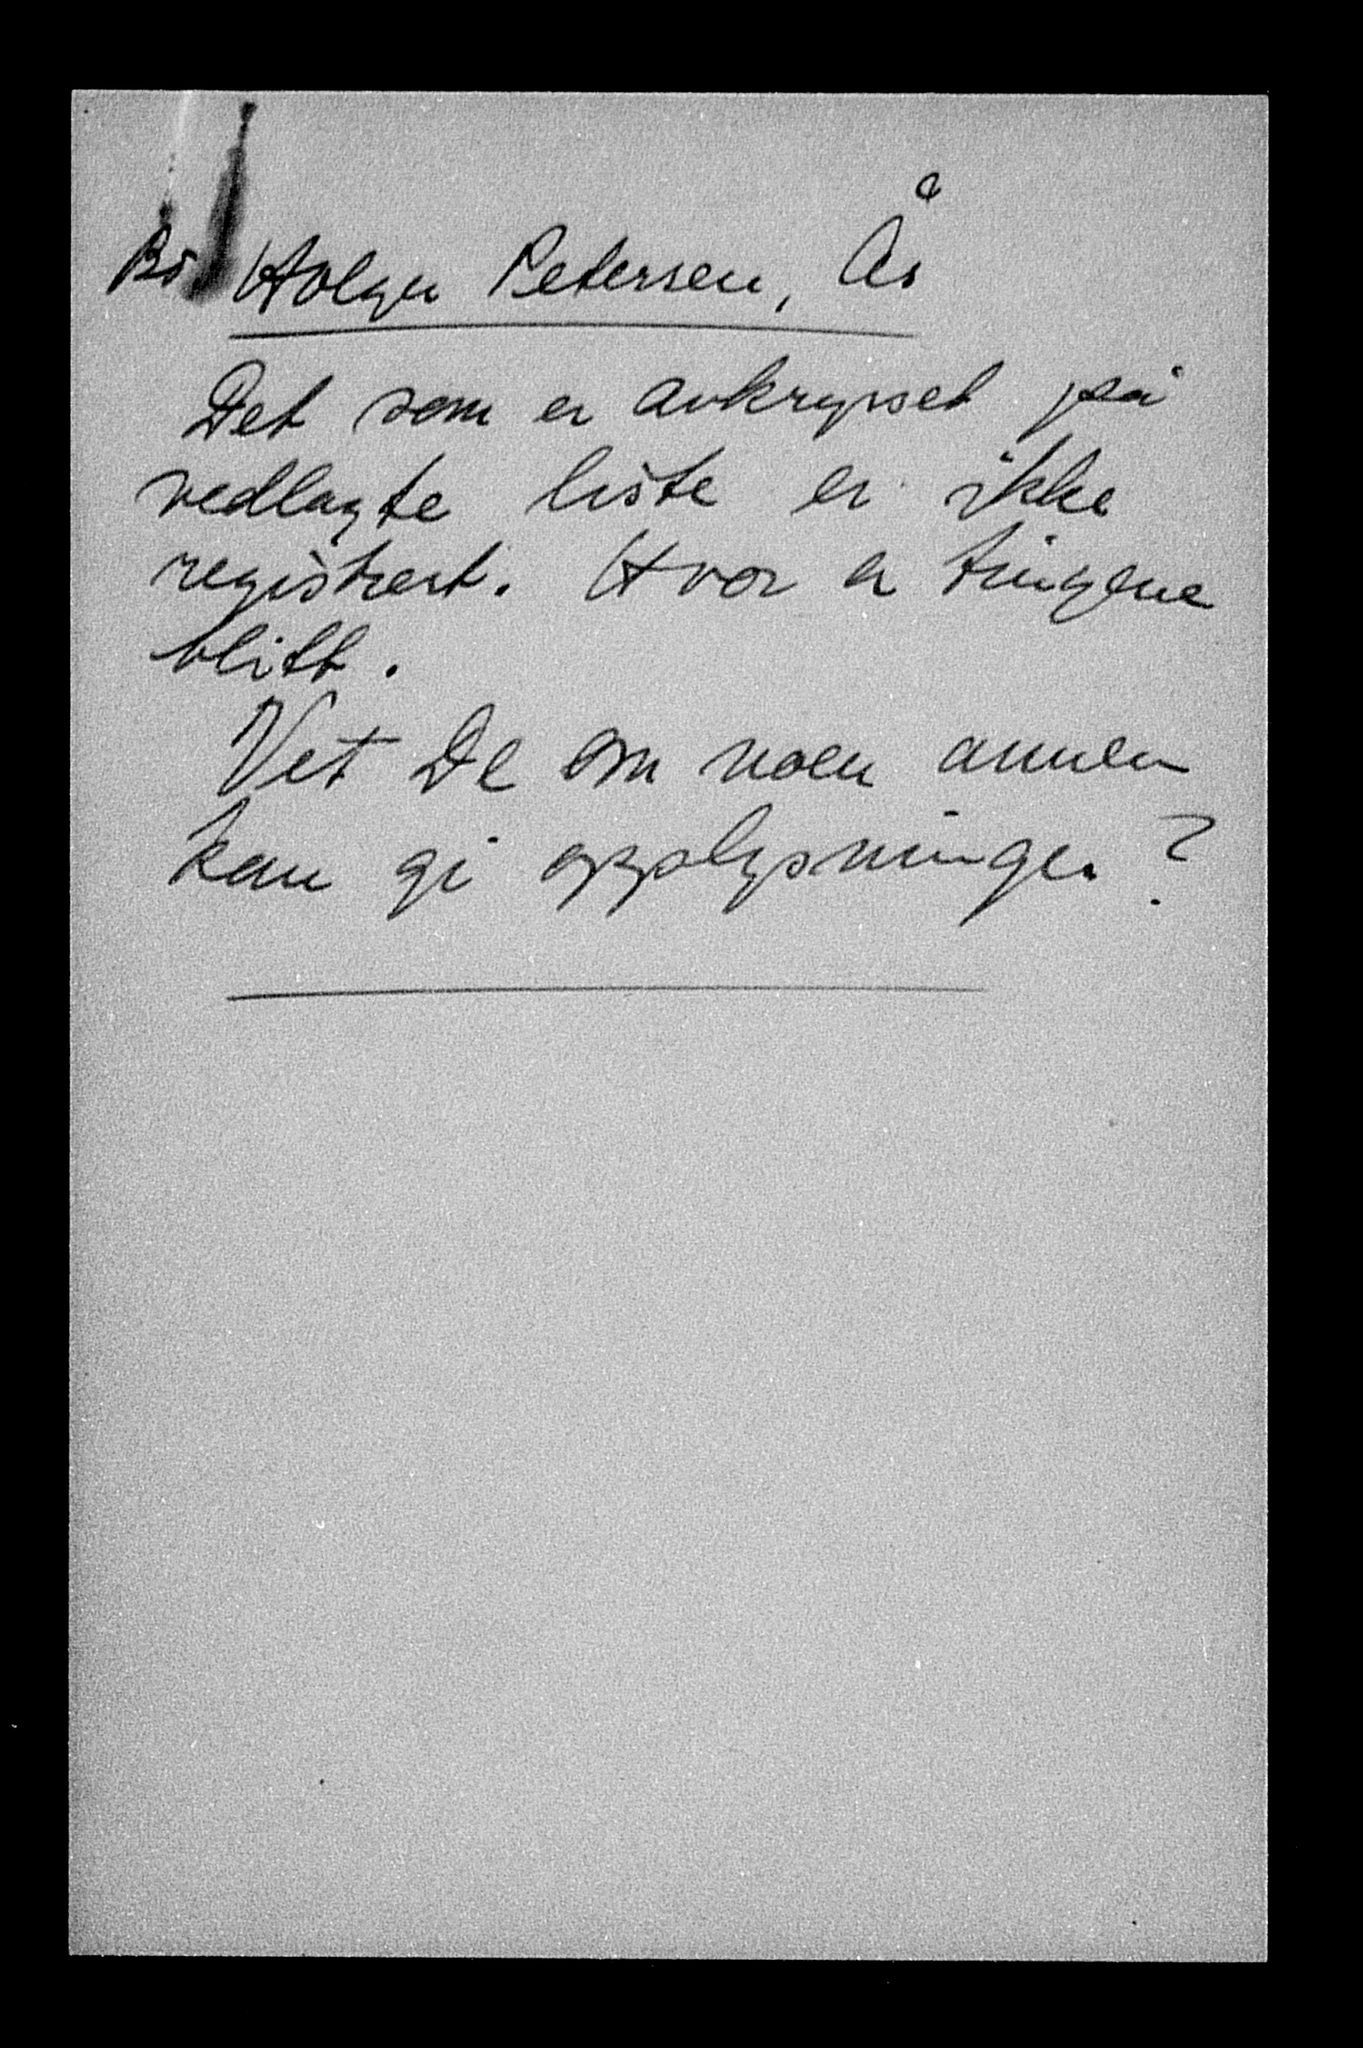 Holger Petersen, Ås
Det som er avkrysset på
vedlagte liste er ikke
registrert. Hvor er tingene
blitt.
Vet De om noen annen
kan gi opplysninger?